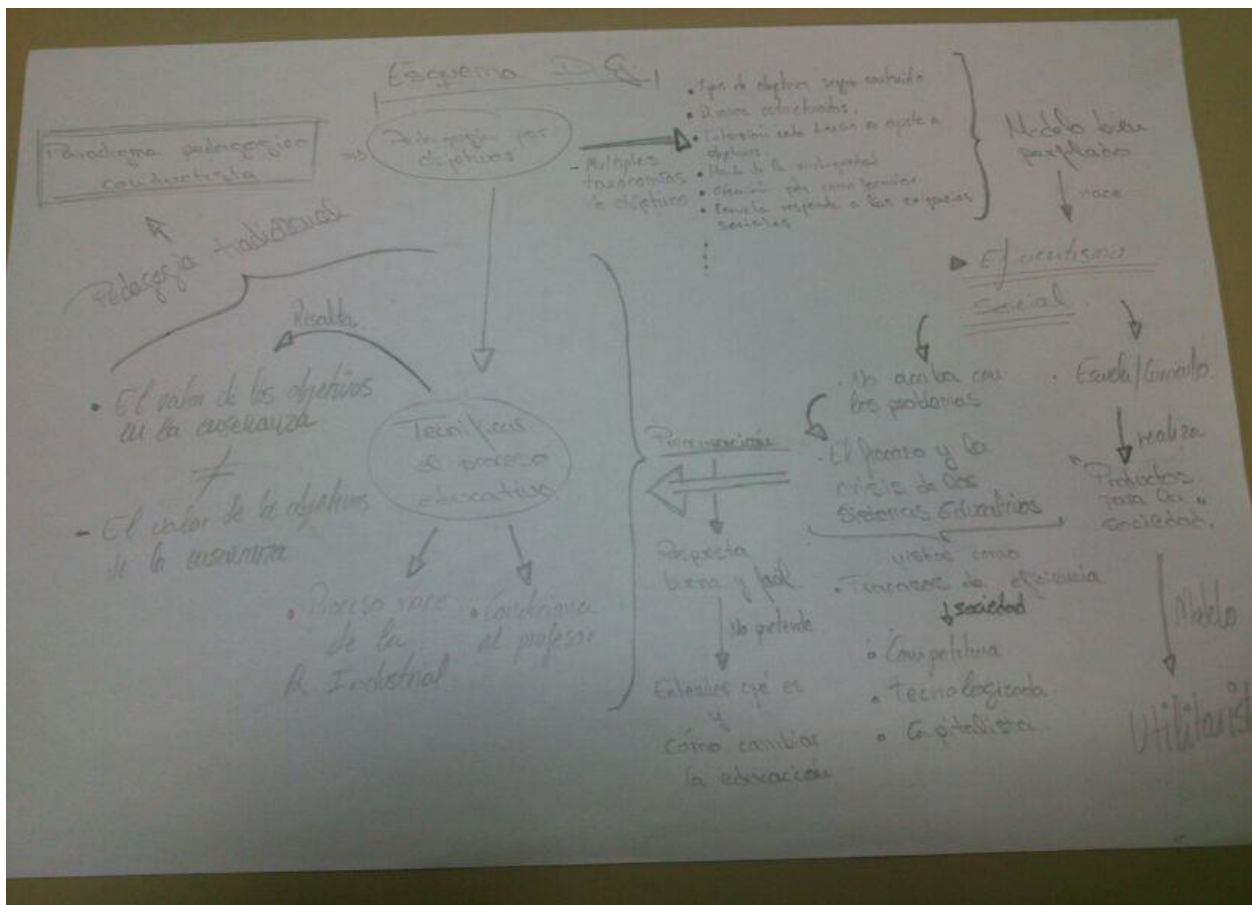 Esquema D.G.
Paradigma pedagógico
conductista
Pedagogía por
objetivos
- Múltiples
taxonomías
de objetivos
• Tipos de objetivos según contenido
• Diseños estructurados.
objetivos.
• Escuela responde a las exigencias
sociales
Modelo bien
perfilado
nace
Eficientismo
Social
Pedagogía tradicional
Resalta
• El valor de los objetivos
en la enseñanza
≠
- El valor de los objetivos
de la enseñanza
Tecnificar
el proceso
educativo
• Proceso nace
de la
R. Industrial
• Condiciona
al profesor
Propuesta
buena y fácil
No pretende
Entender qué es
y
cómo cambiar
la educación
No acaba con
los problemas
• El fracaso y la
crisis de los
Sistemas Educativos
vistos como
• Fracasos de eficiencia
sociedad
• Competitiva
• Tecnologizada
• Capitalista
• Escuela/
realiza
"Productos
para la
sociedad."
Modelo
Utilitarist